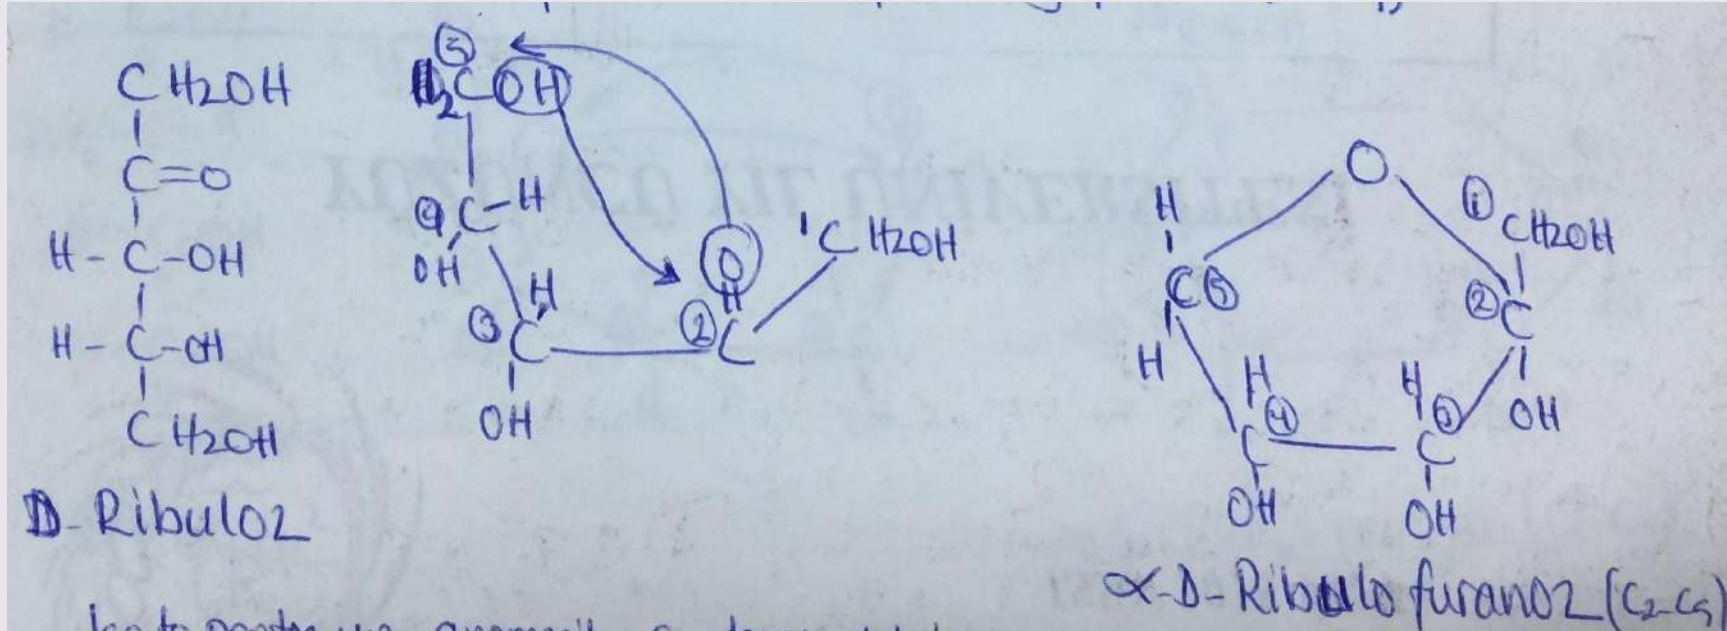 CH2OH
C=O
H-C-OH
H-C-OH
CH2OH
D-Ribuloz
5
H2COH
4 C-H
OH
H
3 C
OH
O
2 C
1 CH2OH
O
H
C 5
H
1
CH2OH
2 C
OH
H
4
C
OH
H
3
C
OH
α-D-Ribulofuranoz (C2-C5)